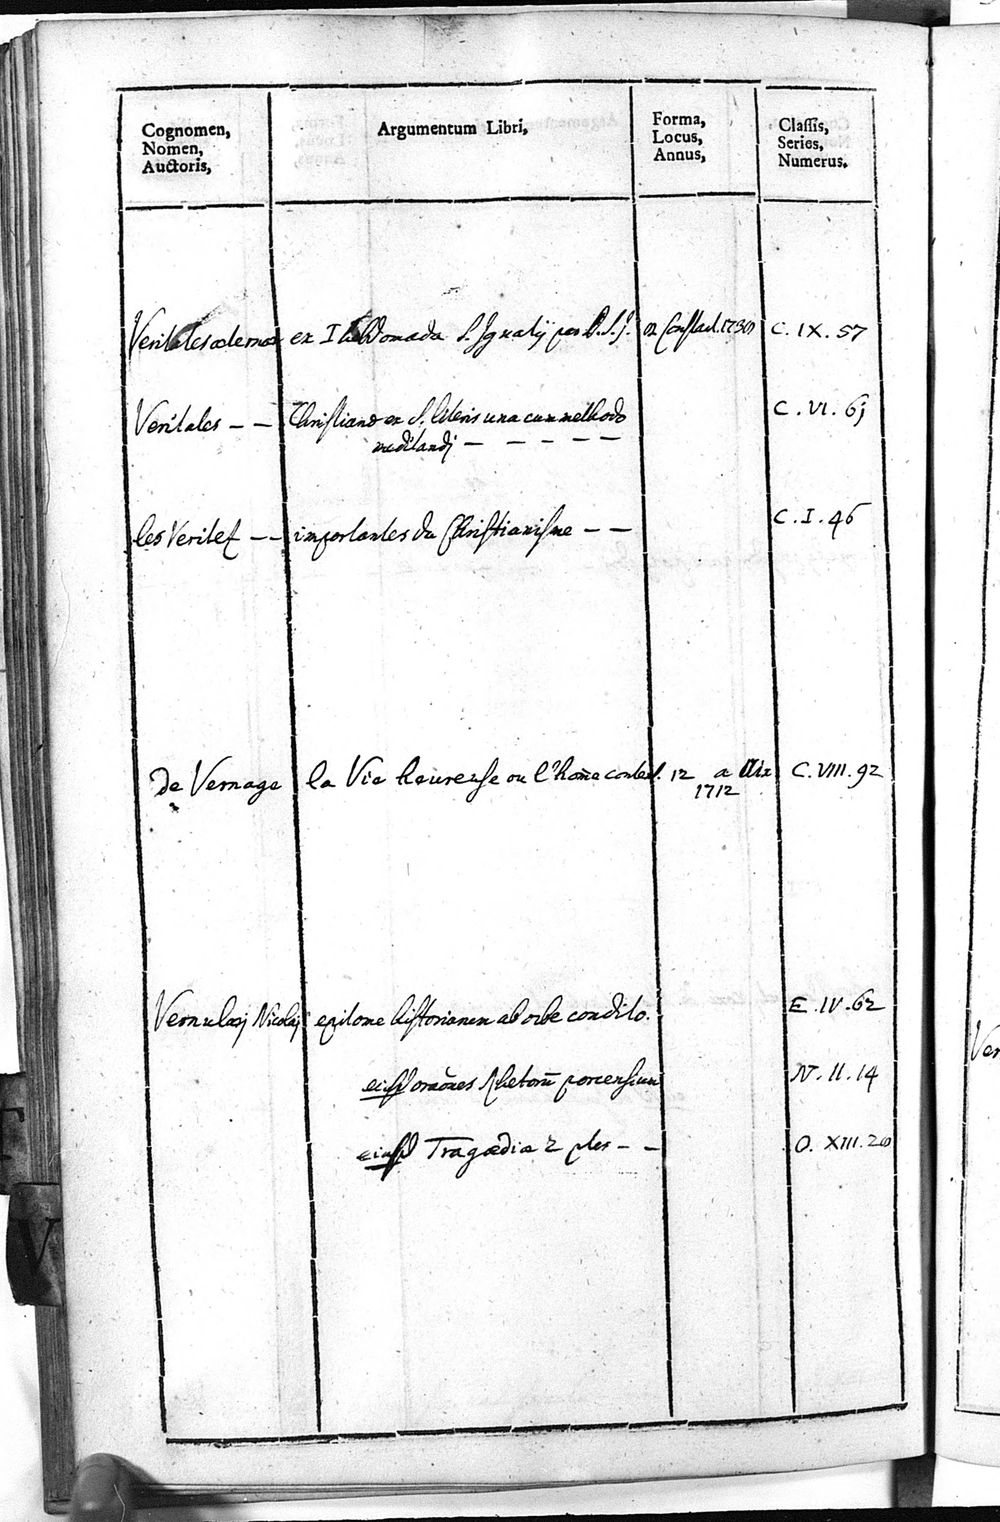 Cognomen,
Nomen,
Auctoris,
Argumentum Libri,
Forma,
Locus,
Annus,
Classis,
Series,
Numerus.
Veritates æternæ ex I Hebdomada S. Ignatij per P. S. J. C. IX. 57
Veritates — — Christianæ ex S. litteris una cum methodo C. VI. 6j
meditandj — — — — —
les Veritez — — importantes du Christianisme — — C. I. 46
de Vernage la Vie heureuse ou l'hom̄e content. 12 a Aix C. VIII. 92
1712
Vernulæj Nicolaj epitome historiarum ab orbe condito. E. IV. 62
eiusd oraōnes Rhetorū porcensium N. II. 14
eiusd Tragædiæ 2 ples — — O. XIII. 20
V
Ver